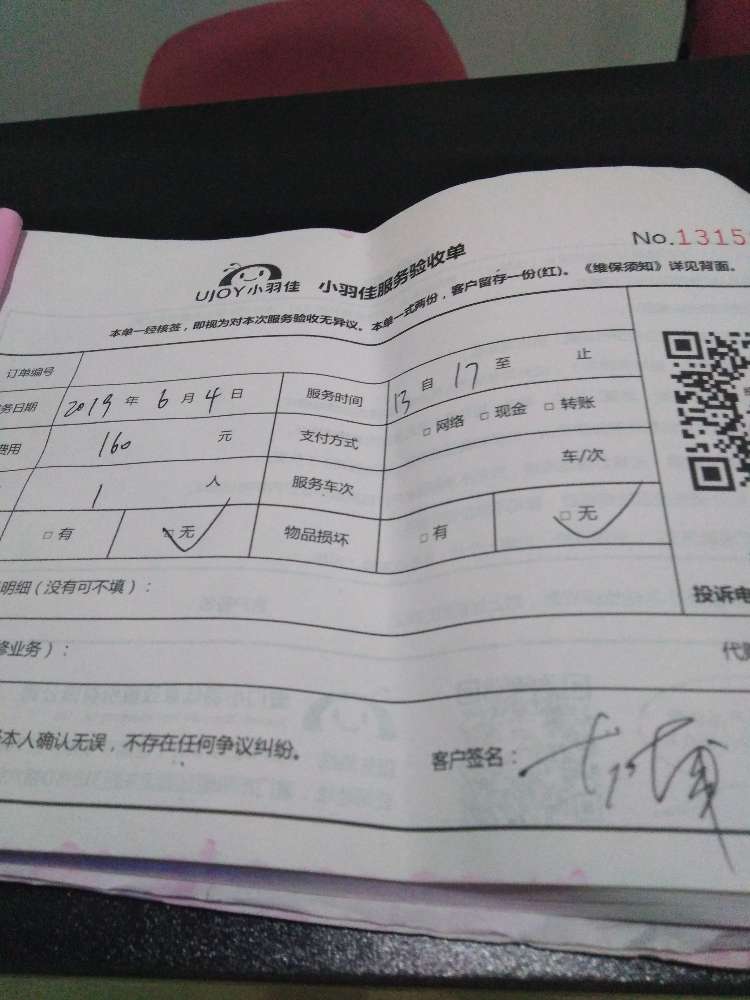 No.1315
UJOY小羽佳 小羽佳服务验收单
本单一经核签，即视为对本次服务验收无异议。本单一式两份，客户留存一份(红)。《维保须知》详见背面。
订单编号
务日期 2019 年 6 月 4 日 服务时间 13 自 17 至 止
费用 160 元 支付方式 □网络 □现金 □转账
1 人 服务车次 车/次
□有 □无 物品损坏 □有 □无
明细（没有可不填）：
投诉电
修业务）：
代购
本人确认无误，不存在任何争议纠纷。 客户签名：